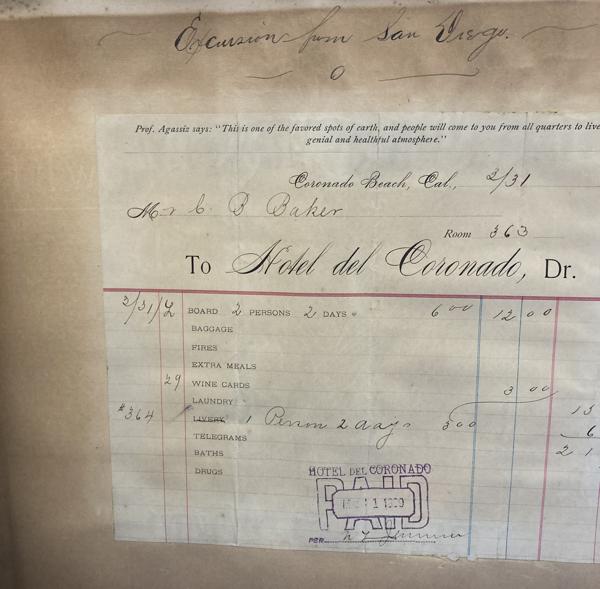 Excursion from San Diego.
Prof. Agassiz says: "This is one of the favored spots of earth, and people will come to you from all quarters to live
genial and healthful atmosphere."
Coronado Beach, Cal., 3/31
Mr C B Baker
Room 363
To Hotel del Coronado, Dr.
3/31/ L BOARD 2 PERSONS 2 DAYS 6 00 12 00
BAGGAGE
FIRES
EXTRA MEALS
29 WINE CARDS 3 00
LAUNDRY
#364 LIVERY 1 Person 2 days 300 15
TELEGRAMS 6
BATHS 21
DRUGS
HOTEL DEL CORONADO
PAID
PER